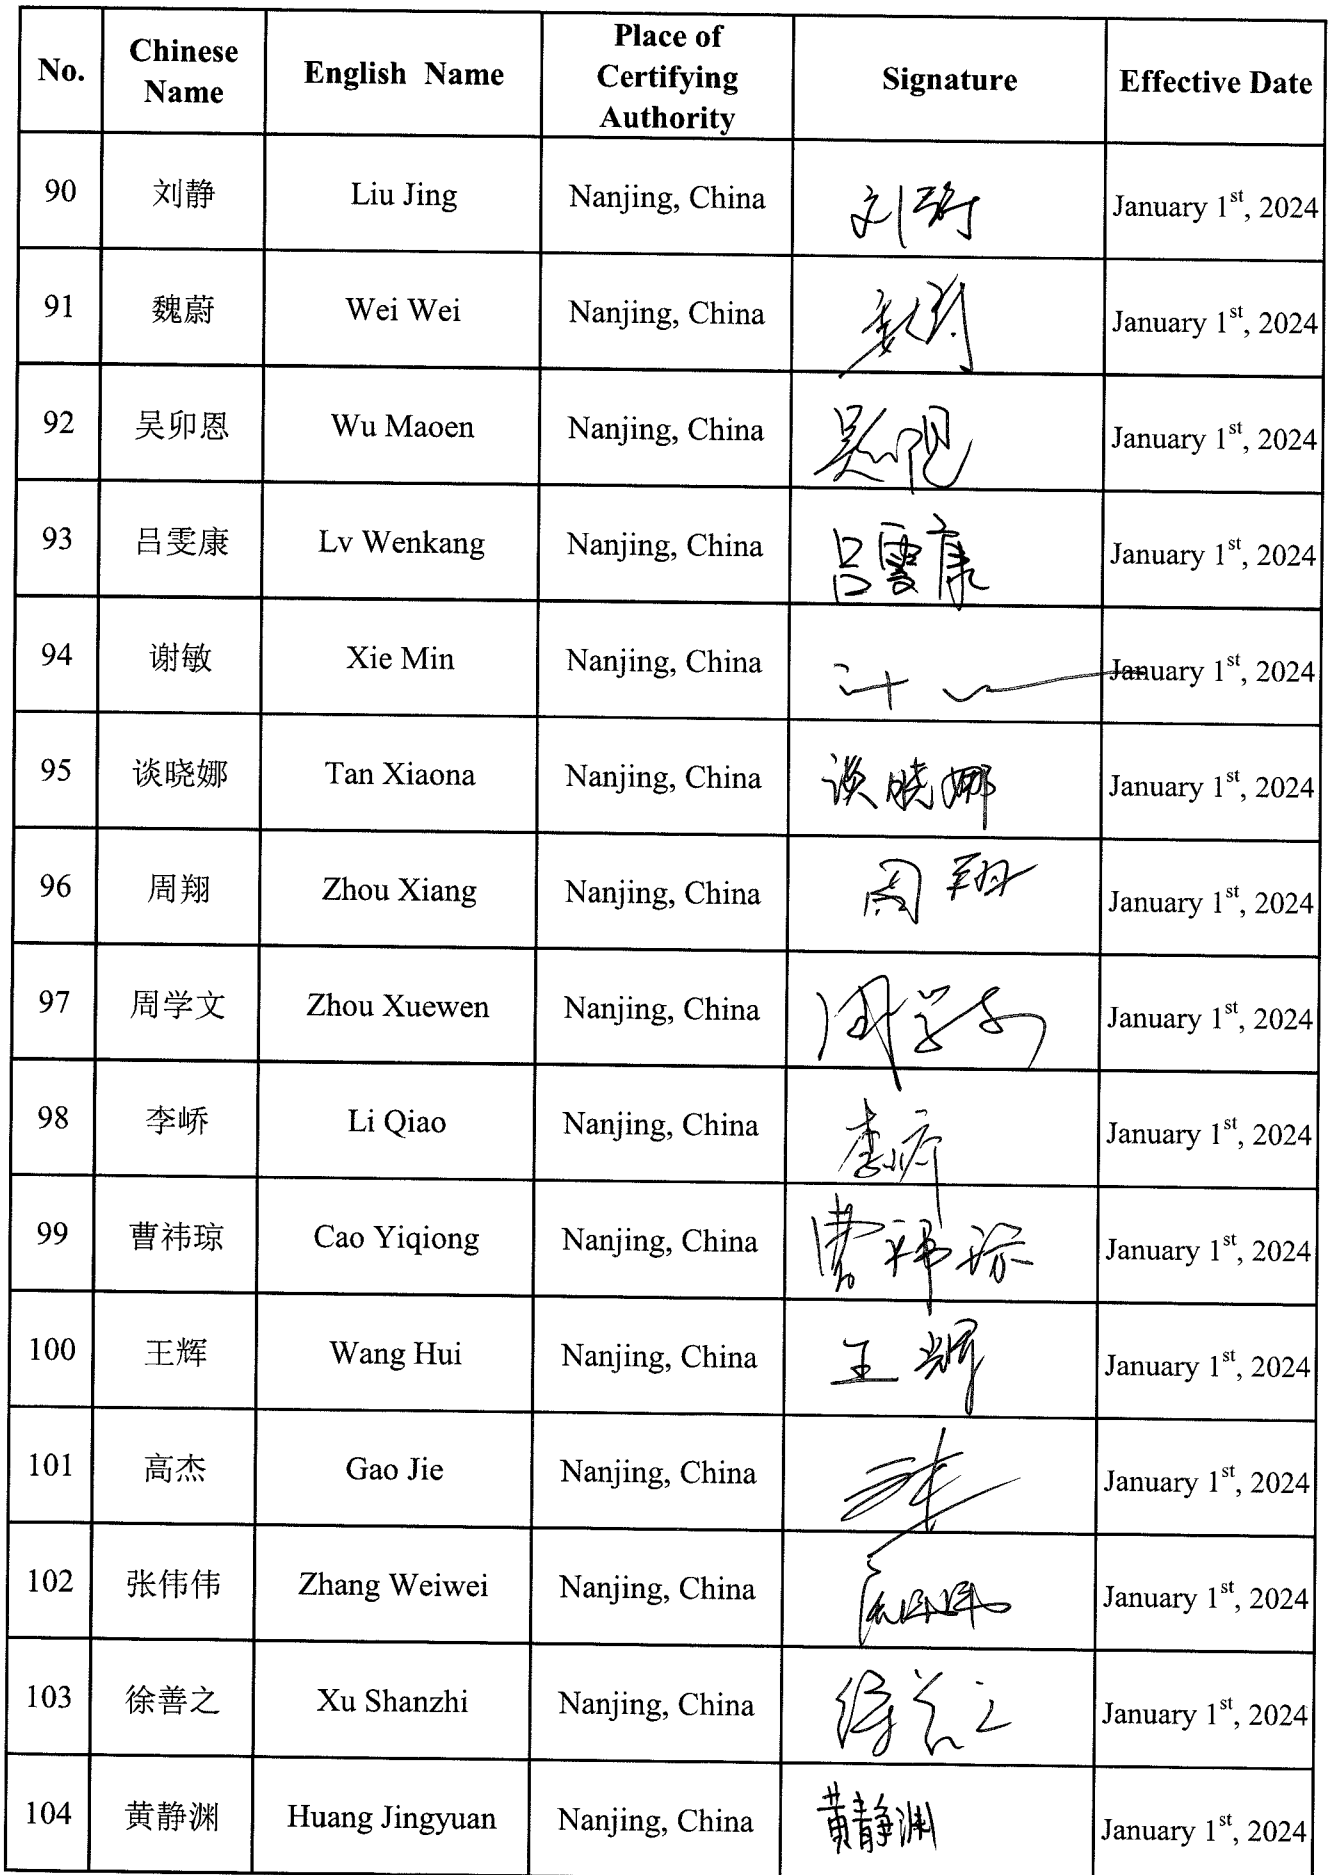 No. Chinese Name English Name Place of Certifying Authority Signature Effective Date
90 刘静 Liu Jing Nanjing, China 刘静 January 1st, 2024
91 魏蔚 Wei Wei Nanjing, China January 1st, 2024
92 吴卯恩 Wu Maoen Nanjing, China January 1st, 2024
93 吕雯康 Lv Wenkang Nanjing, China 吕雯康 January 1st, 2024
94 谢敏 Xie Min Nanjing, China January 1st, 2024
95 谈晓娜 Tan Xiaona Nanjing, China 谈晓娜 January 1st, 2024
96 周翔 Zhou Xiang Nanjing, China 周翔 January 1st, 2024
97 周学文 Zhou Xuewen Nanjing, China 周学文 January 1st, 2024
98 李峤 Li Qiao Nanjing, China January 1st, 2024
99 曹祎琼 Cao Yiqiong Nanjing, China 曹祎琼 January 1st, 2024
100 王辉 Wang Hui Nanjing, China 王辉 January 1st, 2024
101 高杰 Gao Jie Nanjing, China January 1st, 2024
102 张伟伟 Zhang Weiwei Nanjing, China January 1st, 2024
103 徐善之 Xu Shanzhi Nanjing, China 徐善之 January 1st, 2024
104 黄静渊 Huang Jingyuan Nanjing, China 黄静渊 January 1st, 2024